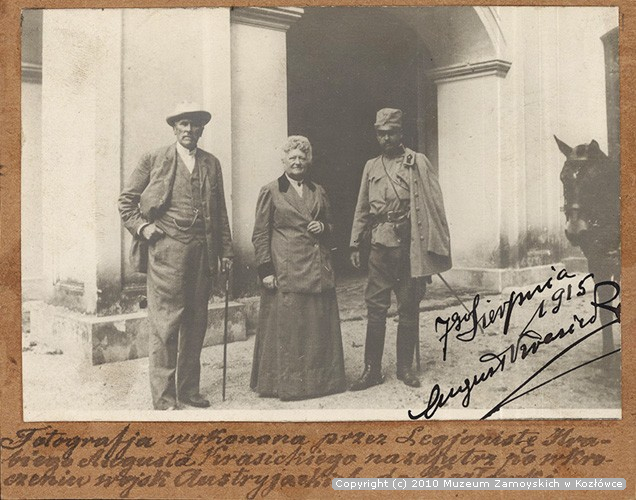 7go Sierpnia
1915 R
August Krasicki
Fotografja wykonana przez Legjonistę Hra-
biego Augusta Krasickiego nazajutrz po wkro-
czeniu wojsk Austryjackich do
Copyright (c) 2010 Muzeum Zamoyskich w Kozłówce